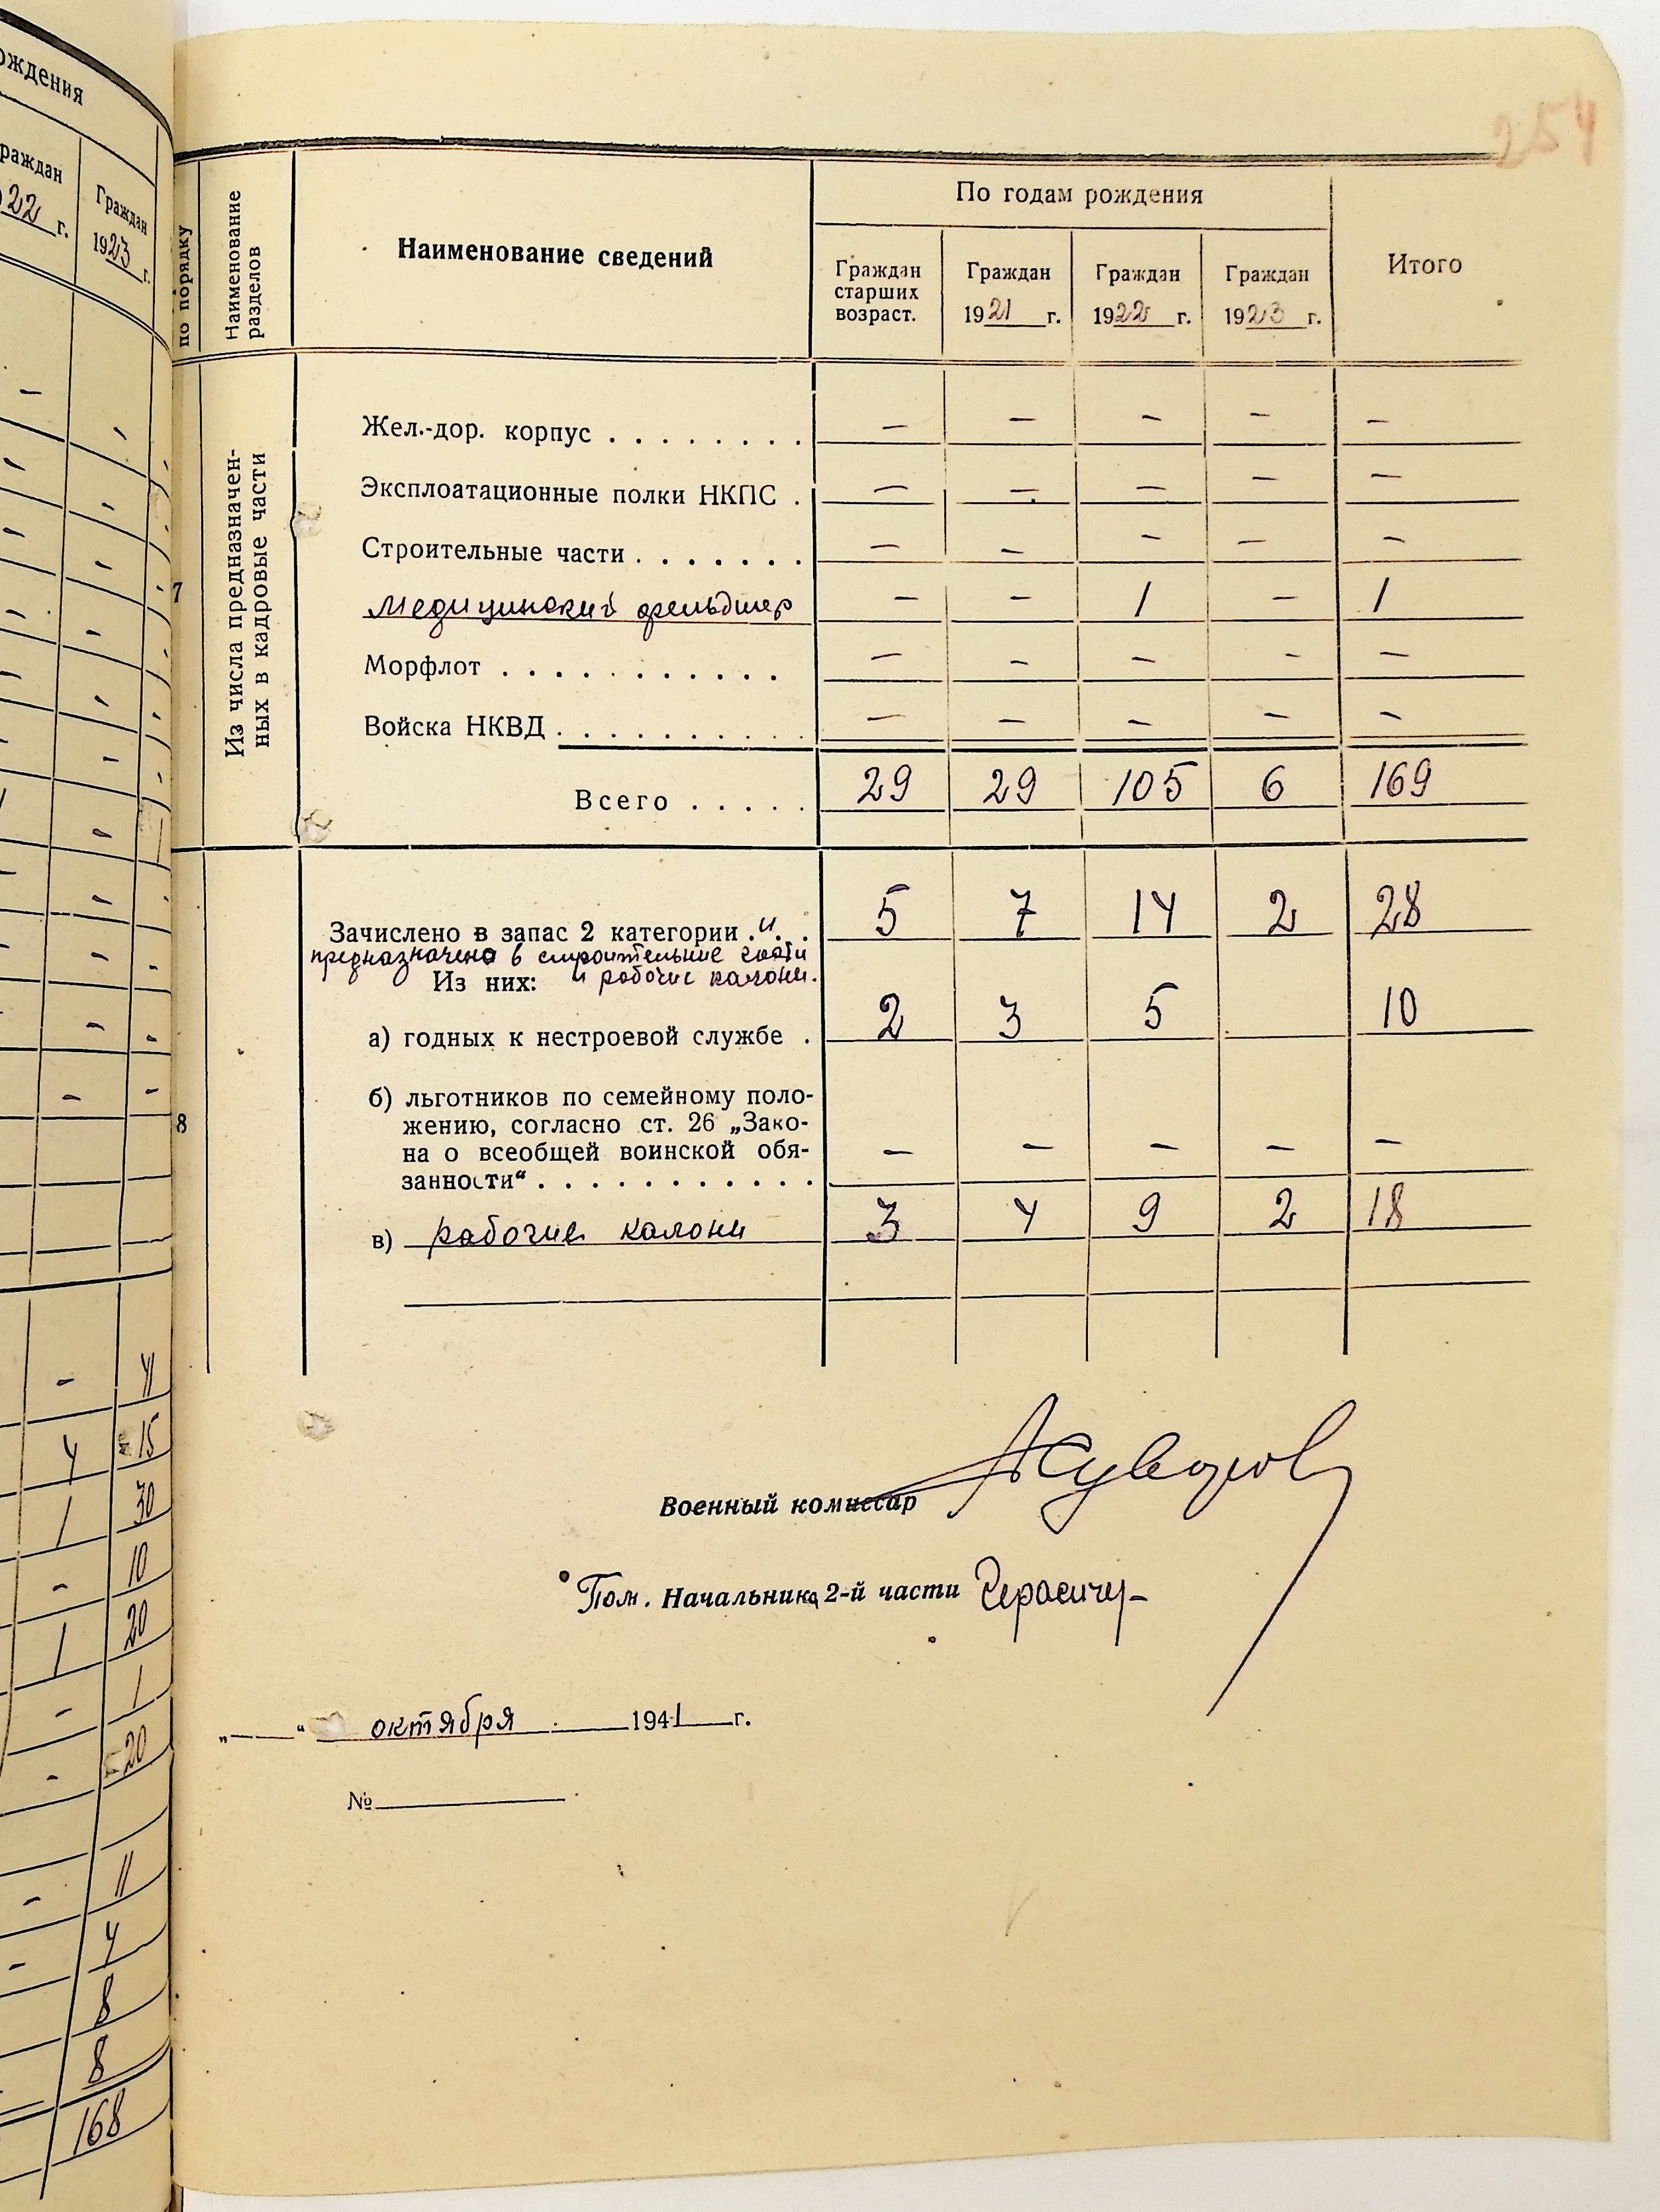 ождения
раждан
22 г.
Граждан
1923 г.
4
4 15
1 30
- 10
1 20
- 1
- 20
- 11
- 4
- 8
8
168
254
по порядку
Наименование разделов
Наименование сведений
По годам рождения
Граждан старших возраст.
Граждан 1921 г.
Граждан 1922 г.
Граждан 1923 г.
Итого
7
Из числа предназначен-
ных в кадровые части
Жел.-дор. корпус . . . . . . . . — — — — —
Эксплоатационные полки НКПС . — — — — —
Строительные части . . . . . . . — — — — —
Медицинский фельдшер — — 1 — 1
Морфлот . . . . . . . . . . . — — — — —
Войска НКВД . . . . . . . . . . — — — — —
Всего . . . . . 29 29 105 6 169
8
Зачислено в запас 2 категории . и . . 5 7 14 2 28
предназначено в строительные части
и рабочие калони.
Из них:
а) годных к нестроевой службе . 2 3 5 10
б) льготников по семейному поло-
жению, согласно ст. 26 „Зако-
на о всеобщей воинской обя-
занности“ . . . . . . . . . . . — — — — —
в) рабочие калони 3 4 9 2 18
Военный комиссар
Пом. Начальника 2-й части
„ “ октября 1941 г.
№